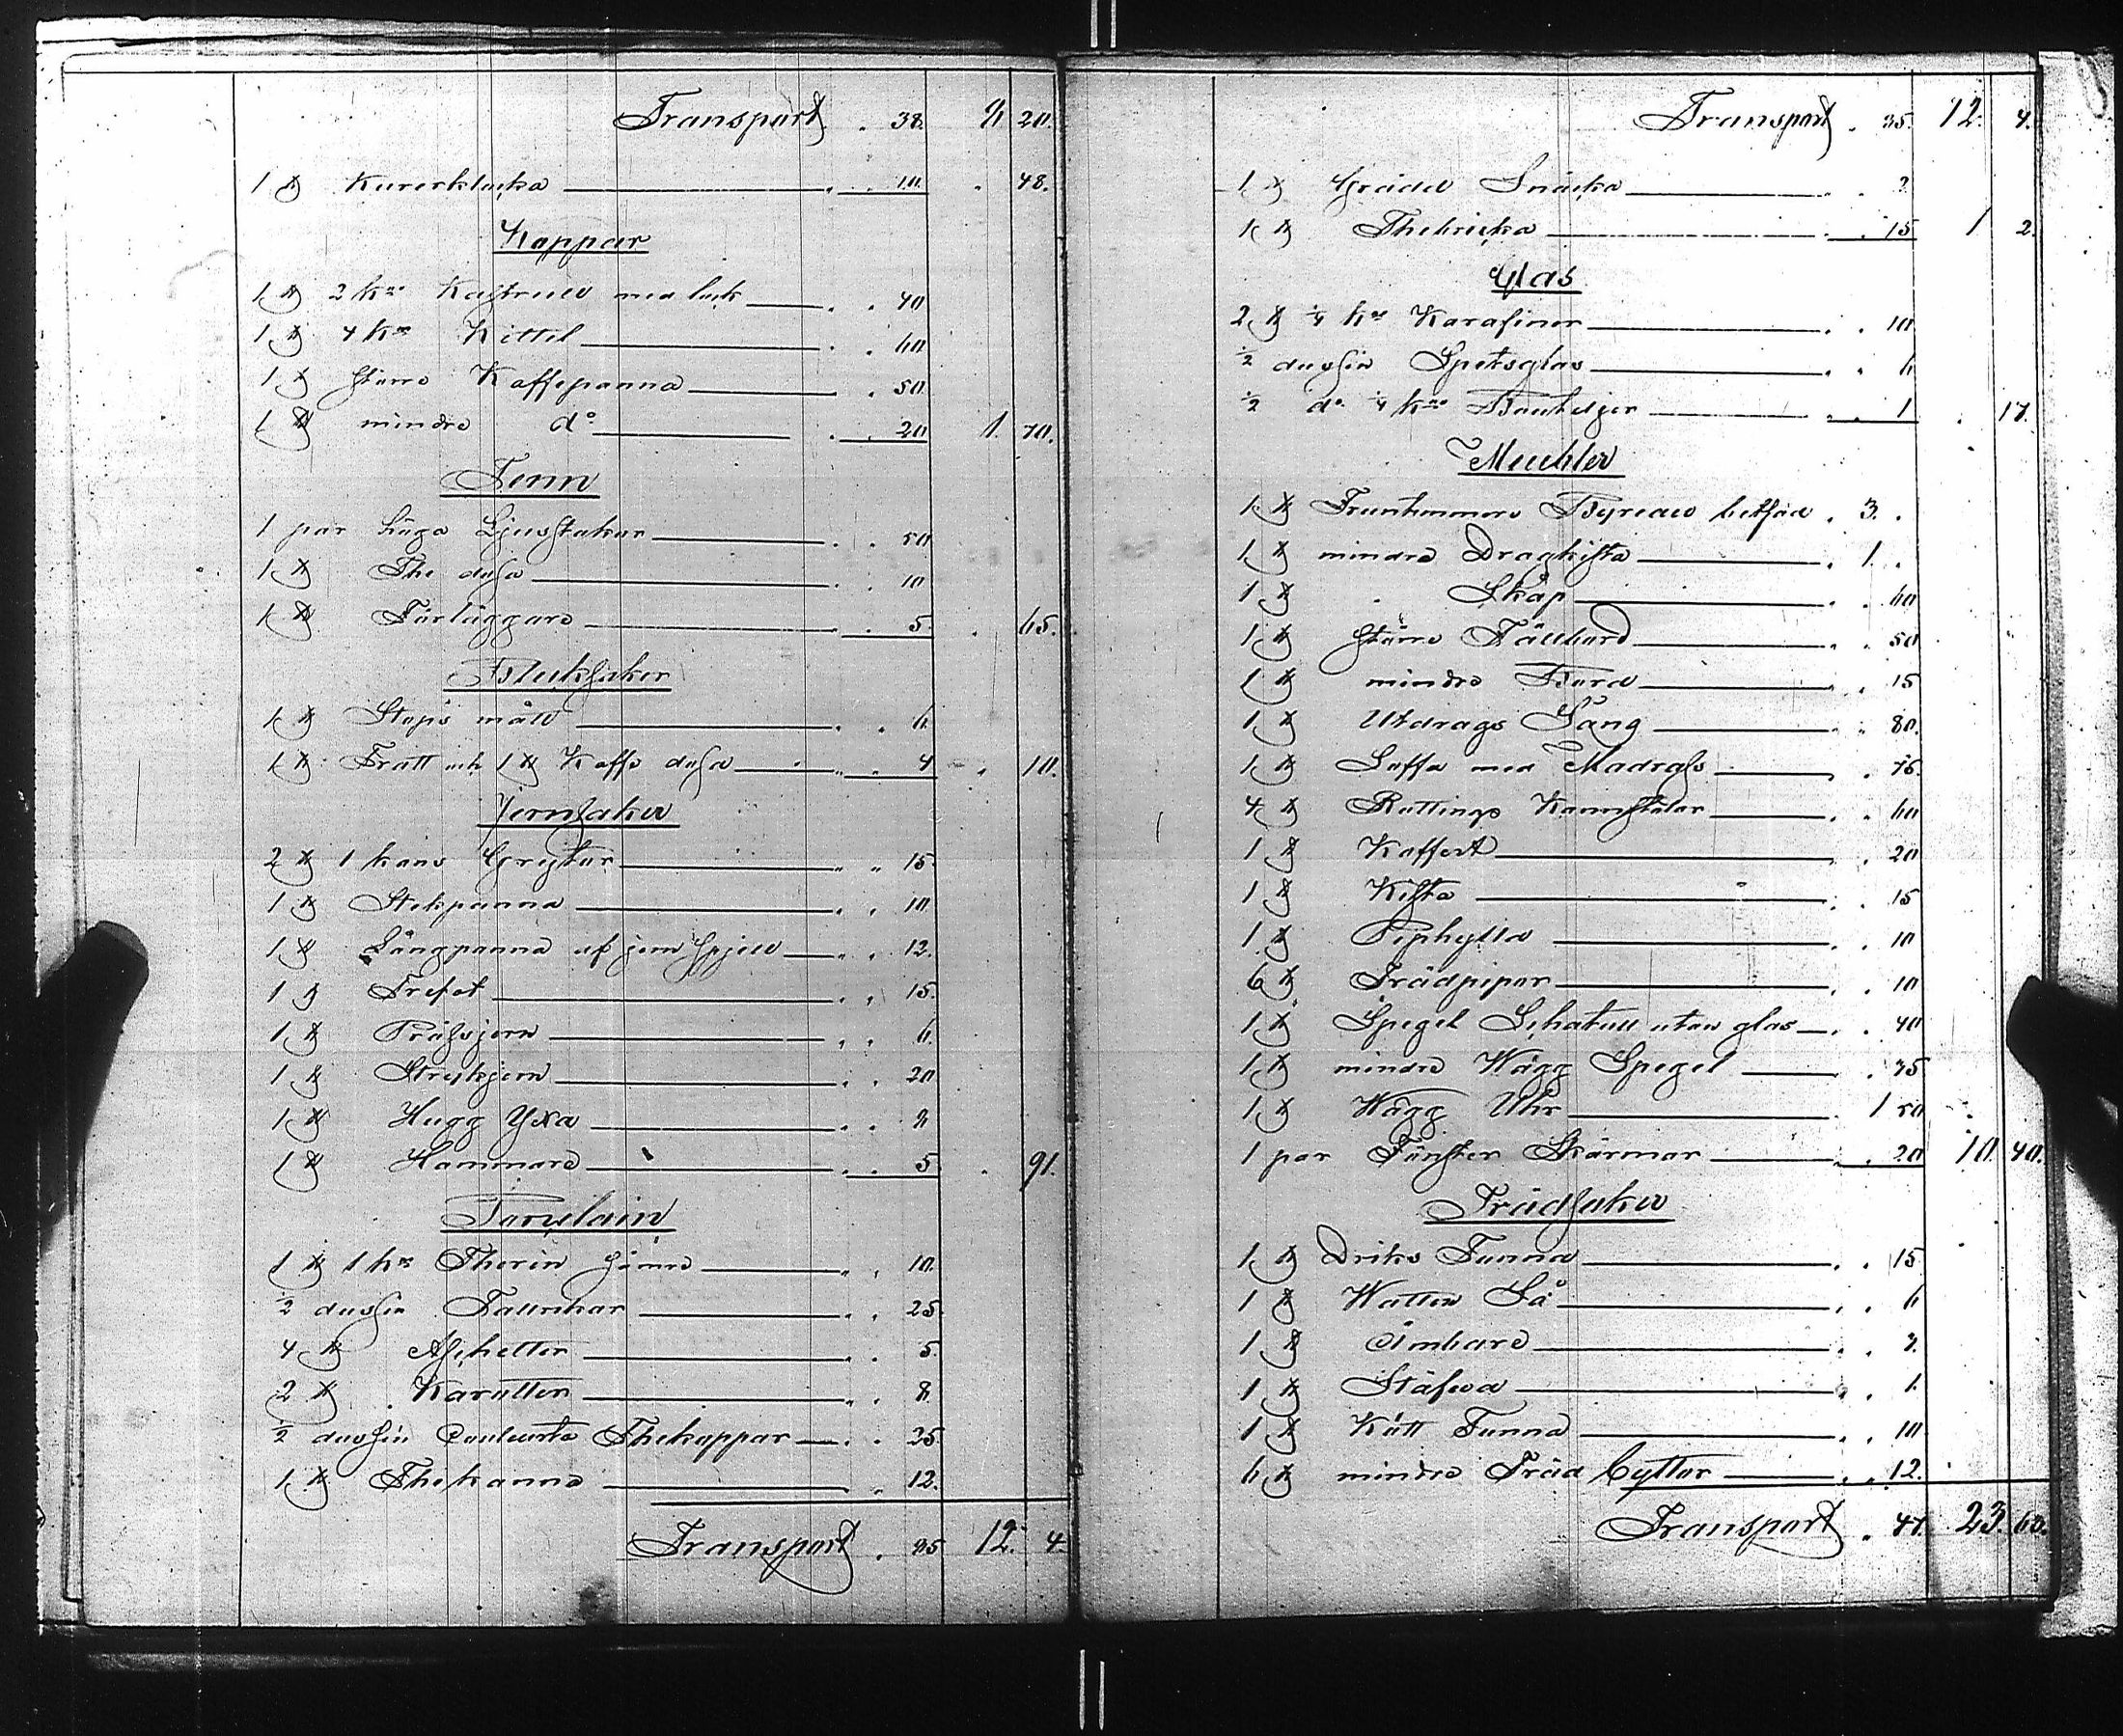 Transport . 38. 8 20.
1 st Kurerklocka . . 10 . 48.
Koppar
1 st 2 kns Kastrull med lock . . 40
1 st 4 kns Kittel . . 60
1 st större Kaffepanna . . 50
1 st mindre do . . 20 1. 70.
Tenn
1 par Låga Ljusstakar . . 50
1 st The dosa . . 10
1 st Förläggare . . 5. . 65.
Bleksaker
1 st Stops mått . . 6.
1 st Tratt och 1 st Kaffe dosa . . 4 . 10.
Jernsaker
2 st 1 kans Grytor . . 15
1 st Stekpanna . . 10
1 st Långpanna af jern spjell . . 12.
1 st Trefot . . 15.
1 st Prässjern . . 6.
1 st Strykjern . . 20
1 st Hugg Yxa . . 8
1 st Hammare . . 5. . 91.
Porcelain
1 st 1 kns Therin sämre . . 10.
1/2 dussin Tallrikar . . 25.
4 st Aschetter . . 5.
2 st Karotter . . 8.
1/2 dussin Couleurta Thekoppar . . 25.
1 st Thekanna . . 12.
Transport . 85 12. 4.
Transport . 85. 12. 4.
1 st Grädd Snäcka . . 2
1 st Thebricka . . 15 1 2.
Glas
2 st 1/4 kns Karafiner . . 10
1/2 dussin Spetsglas . . 6
1/2 do 1/4 kns Bouteljer . . 1 . 17.
Meubler
1 st Fruntimmers Byreau betsad . 3. .
1 st mindre Dragkista . 1. .
1 st Skåp . . 60
1 st större Fällbord . . 50
1 st mindre Bord . . 15
1 st Utdrags Säng . . 80.
1 st Soffa med Madrass . . 75.
4 st Rottings Karmstolar . . 60
1 st Koffert . . 20
1 st Kista . . 15
1 st Piphylla . . 10
6 st Trädpipor . . 10
1 st Spegel Schatull utan glas . . 40
1 st mindre Wägg Spegel . . 35
1 st Wägg Uhr . 1 50
1 par Fönster Skärmar . . 20 10. 40.
Trädsaker
1 st Driks Tunna . . 15
1 st Watten Så . . 6
1 st Ämbare . . 3.
1 st Stäfva . . 1.
1 st Kött Tunna . . 10
6 st mindre Träd Byttor . . 12.
Transport . 47. 23. 63.